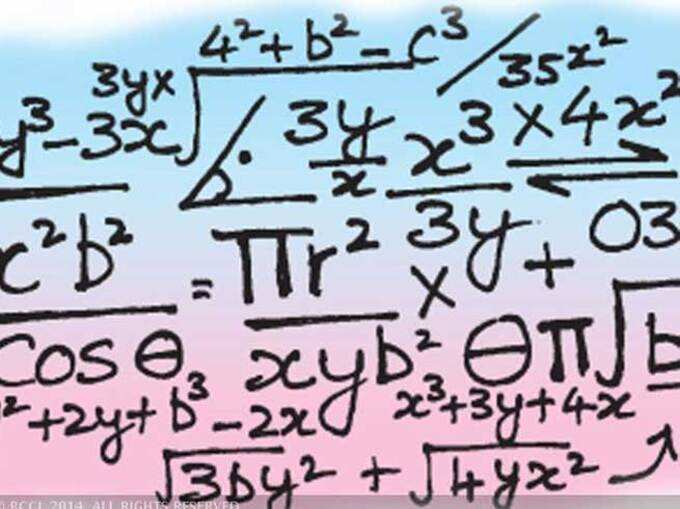 4² + b² – c³ / 35x²
y³ – 3x 3yx√ 3y/x x³/3y × 4x²
c²b² = πr² × + 03
cos θ xyb² θπ√b
² + 2y + b³ – 2x x³ + 3y + 4x
√3by² + √4yx²
© BCCL 2014. ALL RIGHTS RESERVED